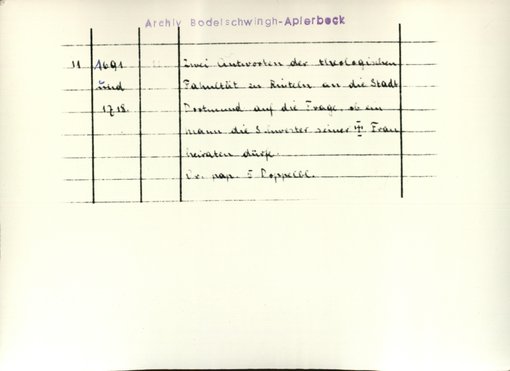 Archiv Bodelschwingh-Aplerbeck
11 1691 Zwei Antworten der theologischen
und Fakultät zu Rinteln an die Stadt
1718. Dortmund auf die Frage, ob ein
Mann die Schwester seiner Frau
heiraten dürfe.
Or. pap. 5 Doppelbl.